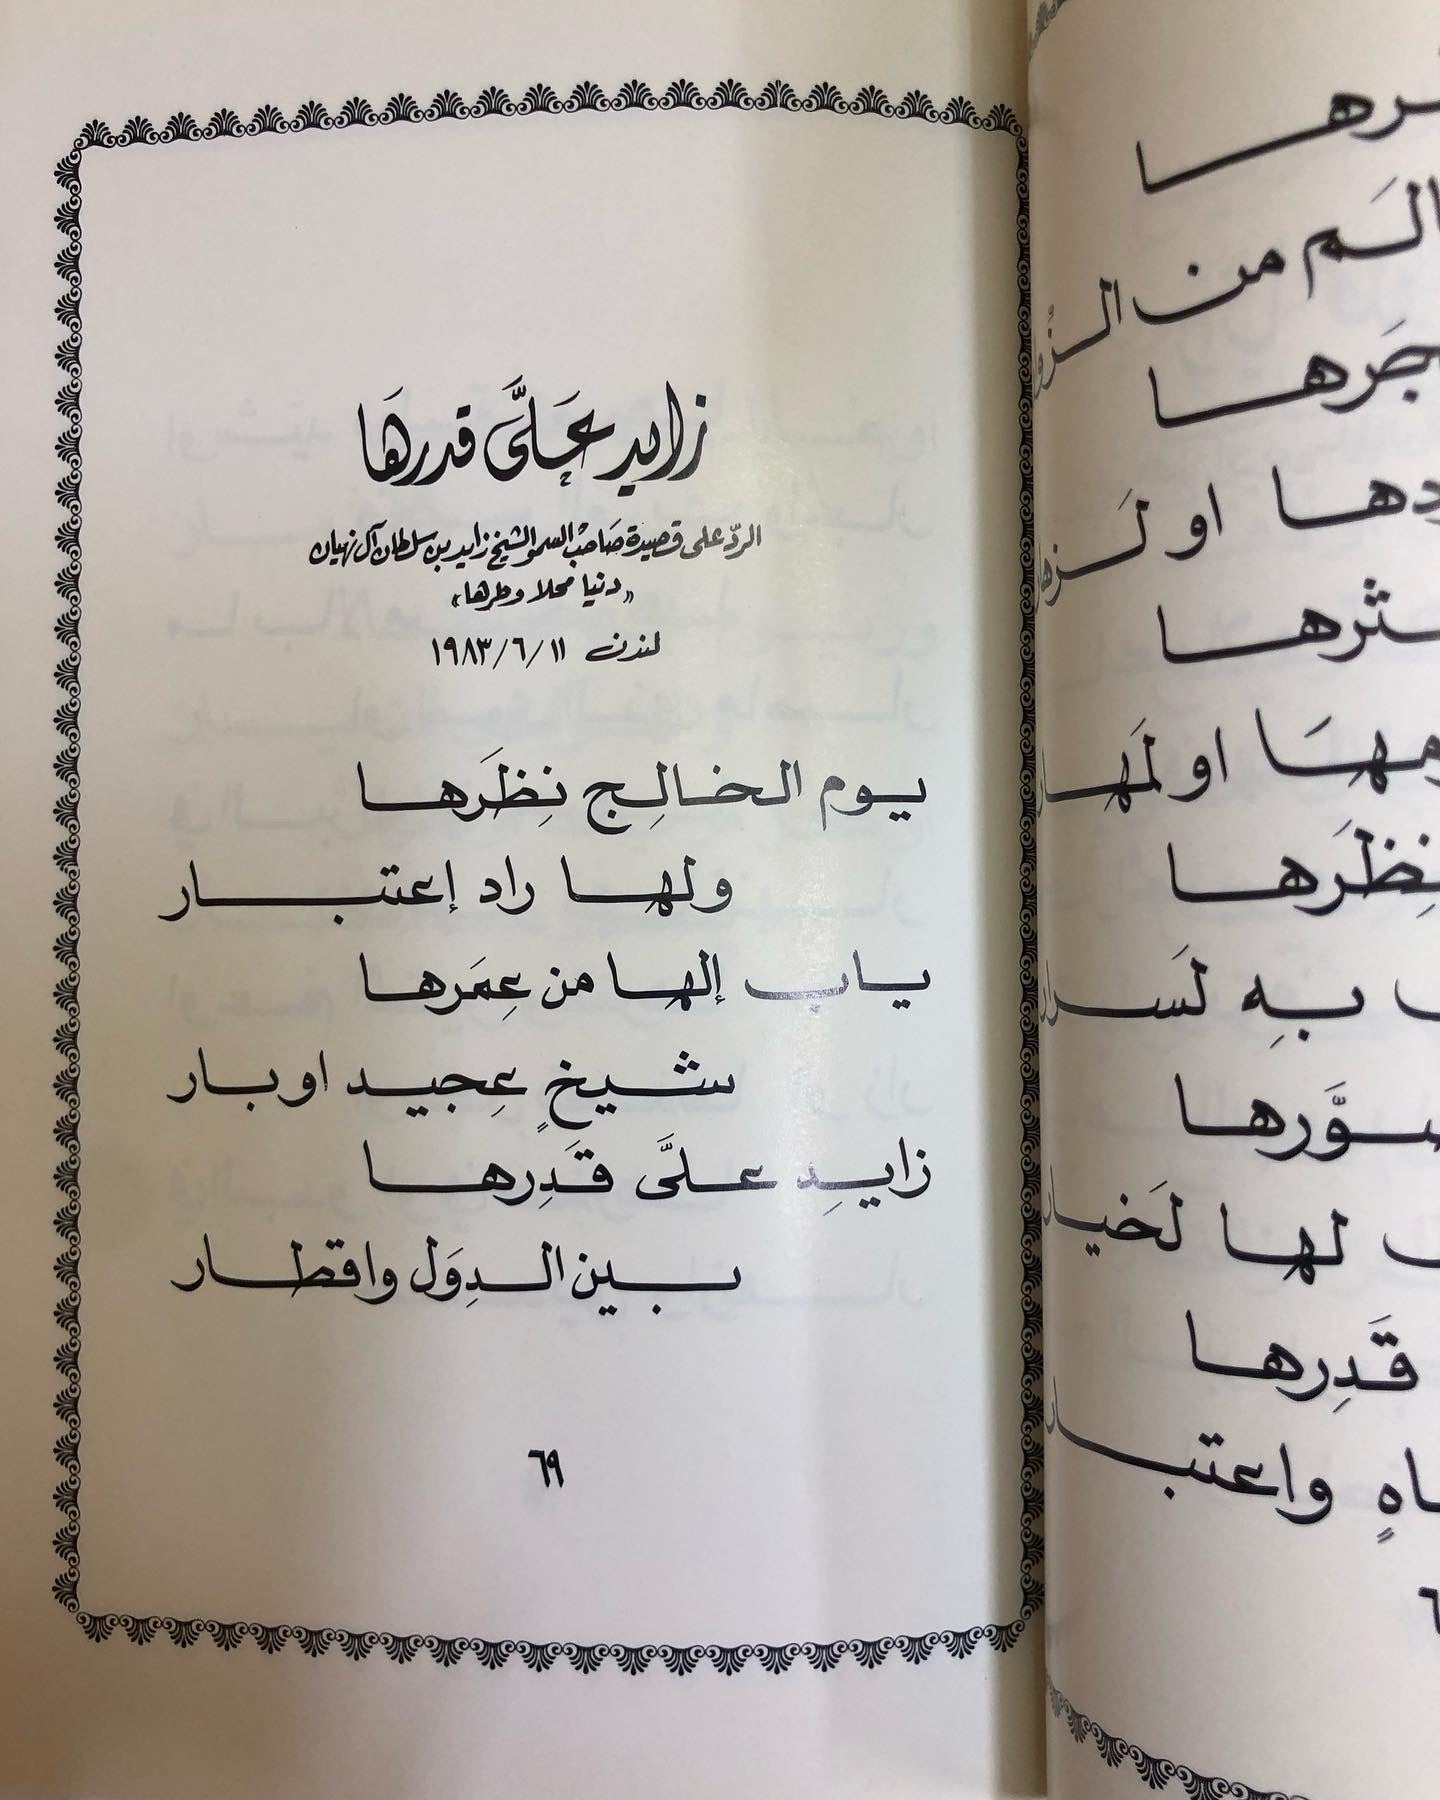 زايد عَلَّى قدرهَا
الردّ على قصيدة صاحب السمو الشيخ زايد بن سلطان آل نهيان
« دنيا محلا وطرها »
لندن ١١/٦/١٩٨٣
يوم الخالِج نِظَرها
ولها راد إعتبار
ياب إلها من عِمَرها
شيخٍ عِجيد اوبار
زايدِ علَّى قَدِرها
بين الدِوَل واقطار
٦٩
ـرها
من
ـجَرها
او
ـثرها
او
نِظَرها
بِهِ
ـوَّرها
لها
قَدِرها
واعتبار